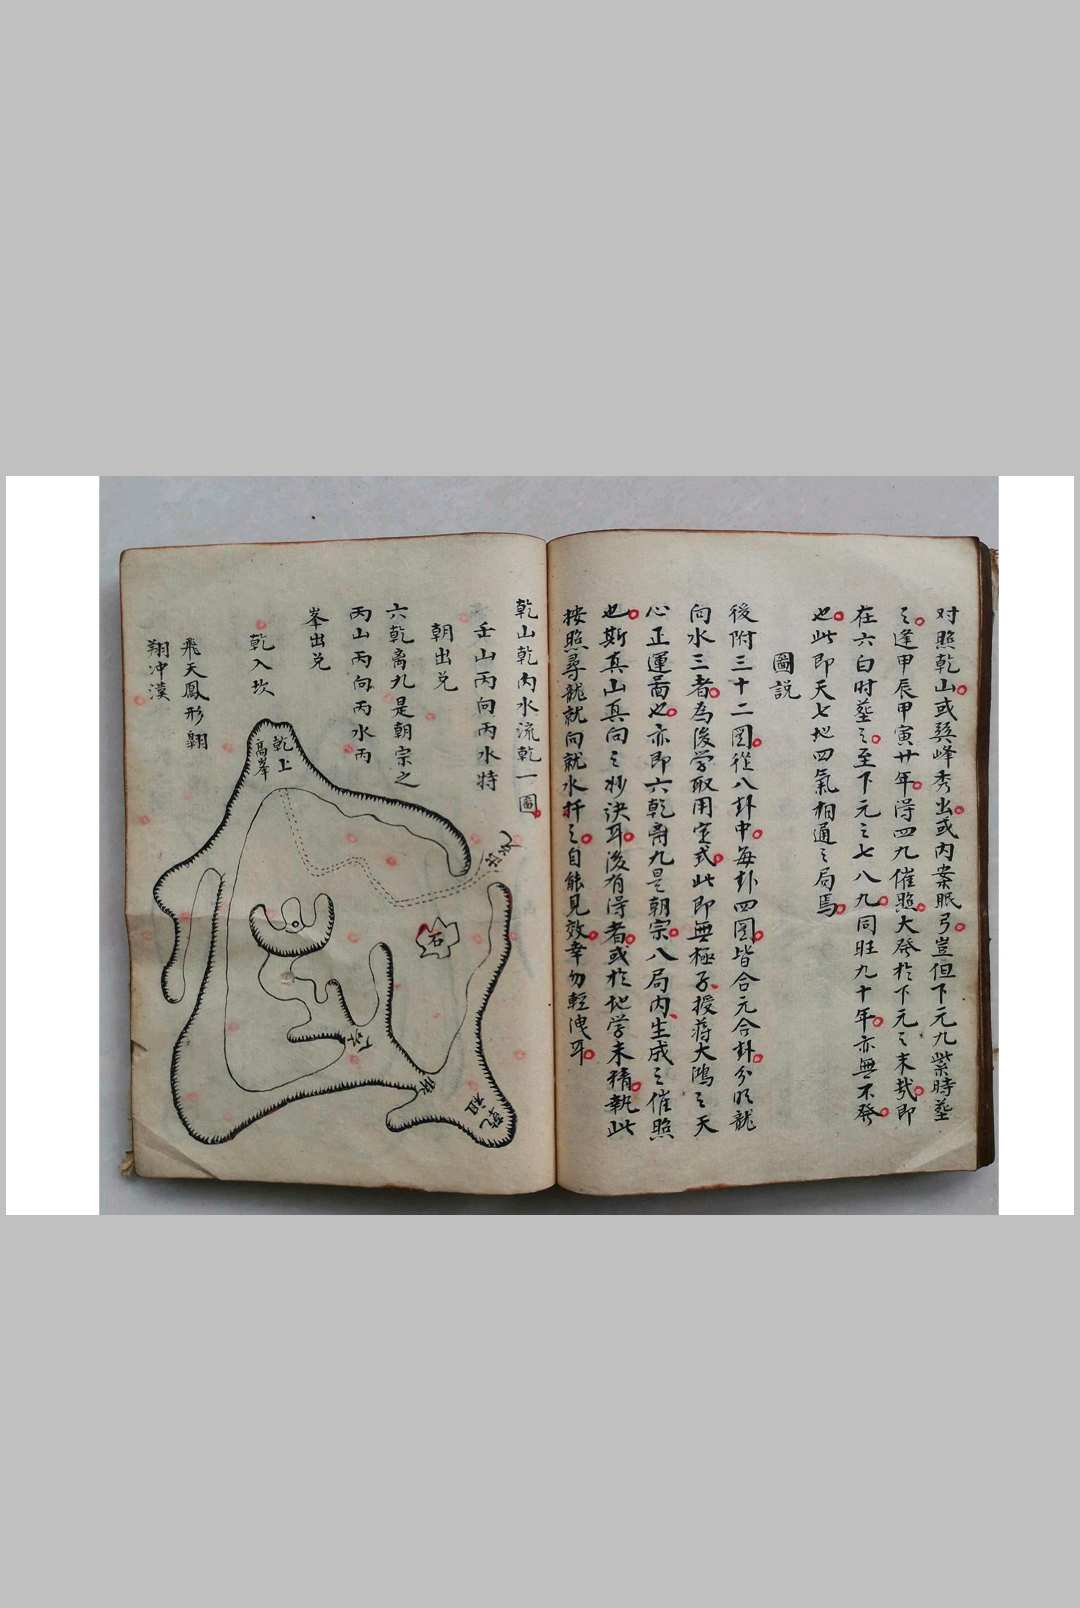 对照乾山或巽峰秀出或内案眠弓豈但下元九紫時塟
之逢甲辰甲寅廿年得四九催照大發於下元之末哉即
在六白時塟之至下元之七八九同旺九十年亦無不發
也此即天七地四氣相通之局焉
圖説
後附三十二圖從八卦中每卦四圖皆合元合卦分明龍
向水三者為後学取用定式此即無極子授蔣大鴻之天
心正運啚也亦即六乾离九是朝宗八局内生成之催照
也斯真山真向之妙决耳後有得者或於地学未精執此
按照尋龍就向就水扦之自能見效幸勿輕洩耳
乾山乾向水流乾一圖
壬山丙向丙水特
朝出兑
六乾离九是朝宗之
丙山丙向丙水丙
峯出兑
乾入坎
飛天鳳形翺
翔冲漢
乾上
高峯
石
乾祖